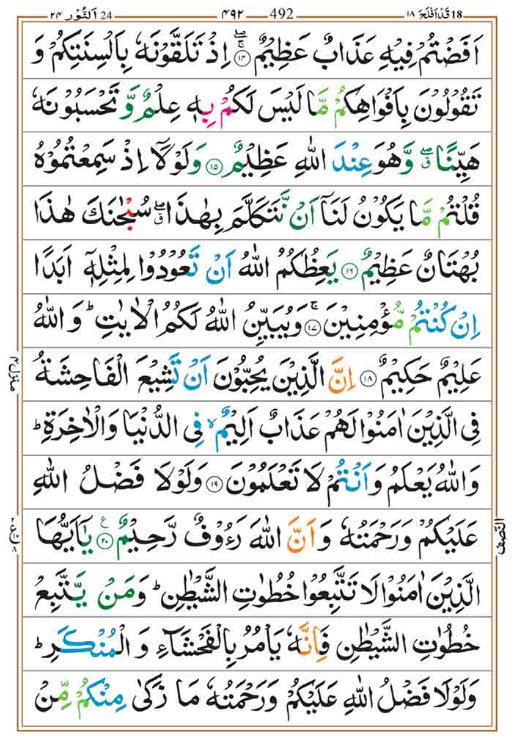 24 اَلنُّوْر ۲۴
۴۹۲ 492
18 قَدْ اَفْلَحَ ۱۸
اَفَضْتُمْ فِيْهِ عَذَابٌ عَظِيْمٌ ۝۱۴ۚۖ اِذْ تَلَقَّوْنَهٗ بِاَلْسِنَتِكُمْ وَ
تَقُوْلُوْنَ بِاَفْوَاهِكُمْ مَّا لَيْسَ لَكُمْ بِهٖ عِلْمٌ وَّ تَحْسَبُوْنَهٗ
هَيِّنًا ۖۗ وَّهُوَ عِنْدَ اللّٰهِ عَظِيْمٌ ۝۱۵ وَلَوْلَاۤ اِذْ سَمِعْتُمُوْهُ
قُلْتُمْ مَّا يَكُوْنُ لَنَاۤ اَنْ نَّتَكَلَّمَ بِهٰذَا ۖۗ سُبْحٰنَكَ هٰذَا
بُهْتَانٌ عَظِيْمٌ ۝۱۶ يَعِظُكُمُ اللّٰهُ اَنْ تَعُوْدُوْا لِمِثْلِهٖۤ اَبَدًا
اِنْ كُنْتُمْ مُّؤْمِنِيْنَ ۝۱۷ۚ وَيُبَيِّنُ اللّٰهُ لَكُمُ الْاٰيٰتِ ؕ وَ اللّٰهُ
عَلِيْمٌ حَكِيْمٌ ۝۱۸ اِنَّ الَّذِيْنَ يُحِبُّوْنَ اَنْ تَشِيْعَ الْفَاحِشَةُ
فِى الَّذِيْنَ اٰمَنُوْا لَهُمْ عَذَابٌ اَلِيْمٌ ۙ فِى الدُّنْيَا وَالْاٰخِرَةِ ؕ
وَاللّٰهُ يَعْلَمُ وَ اَنْتُمْ لَا تَعْلَمُوْنَ ۝۱۹ وَلَوْلَا فَضْلُ اللّٰهِ
عَلَيْكُمْ وَرَحْمَتُهٗ وَ اَنَّ اللّٰهَ رَءُوْفٌ رَّحِيْمٌ ۝۲۰ۧ يٰۤاَيُّهَا
الَّذِيْنَ اٰمَنُوْا لَا تَتَّبِعُوْا خُطُوٰتِ الشَّيْطٰنِ ؕ وَمَنْ يَّتَّبِعْ
خُطُوٰتِ الشَّيْطٰنِ فَاِنَّهٗ يَاْمُرُ بِالْفَحْشَآءِ وَ الْمُنْكَرِ ؕ
وَلَوْلَا فَضْلُ اللّٰهِ عَلَيْكُمْ وَرَحْمَتُهٗ مَا زَكٰى مِنْكُمْ مِّنْ
النصف